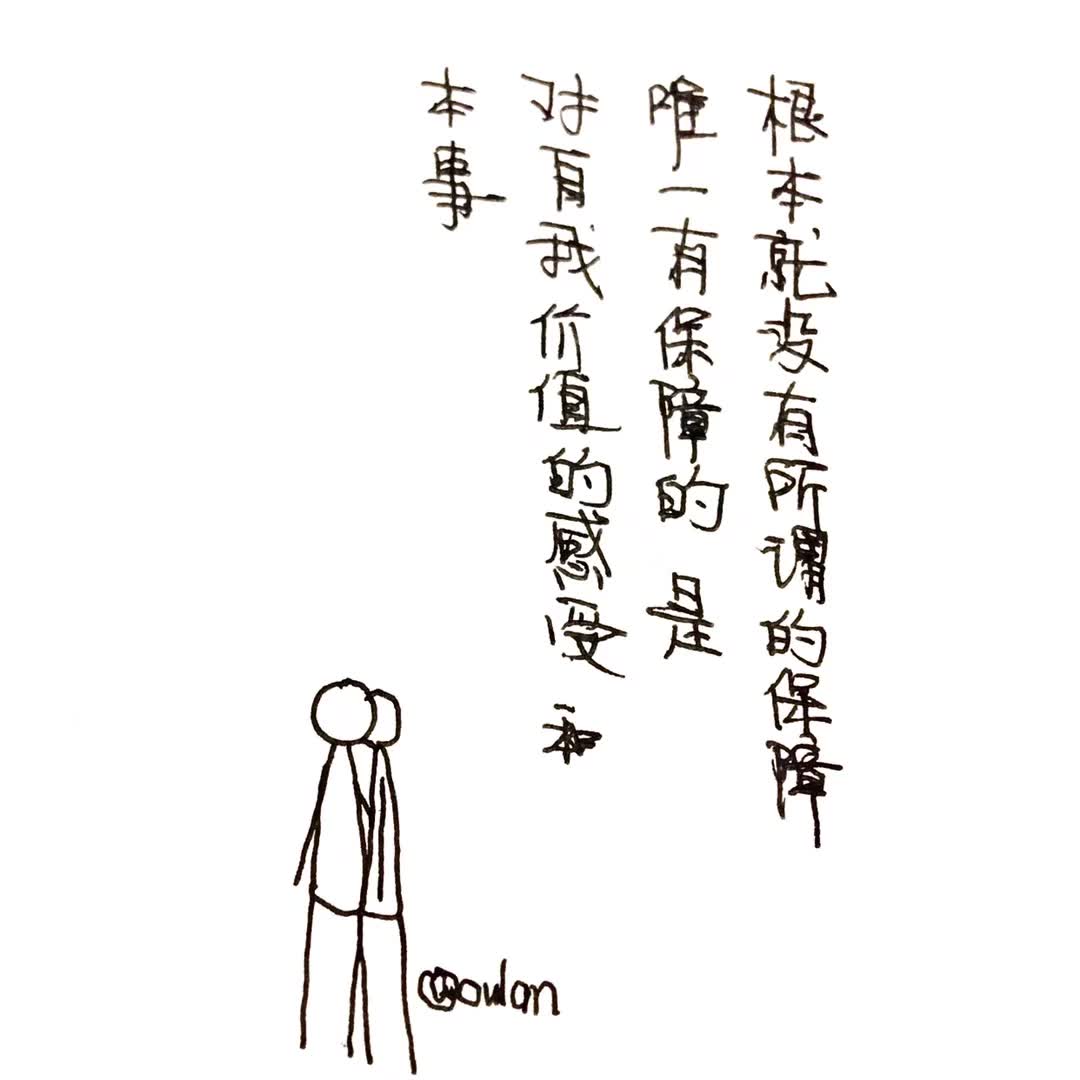 根本就没有所谓的保障
唯一有保障的 是
对自我价值的感受 和
本事
oulan